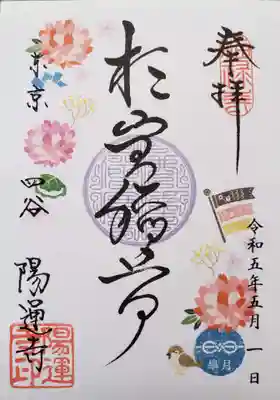 奉拝
令和五年五月一日
於岩稲荷
東京 四谷
陽運寺
陽運
寺印
皐月